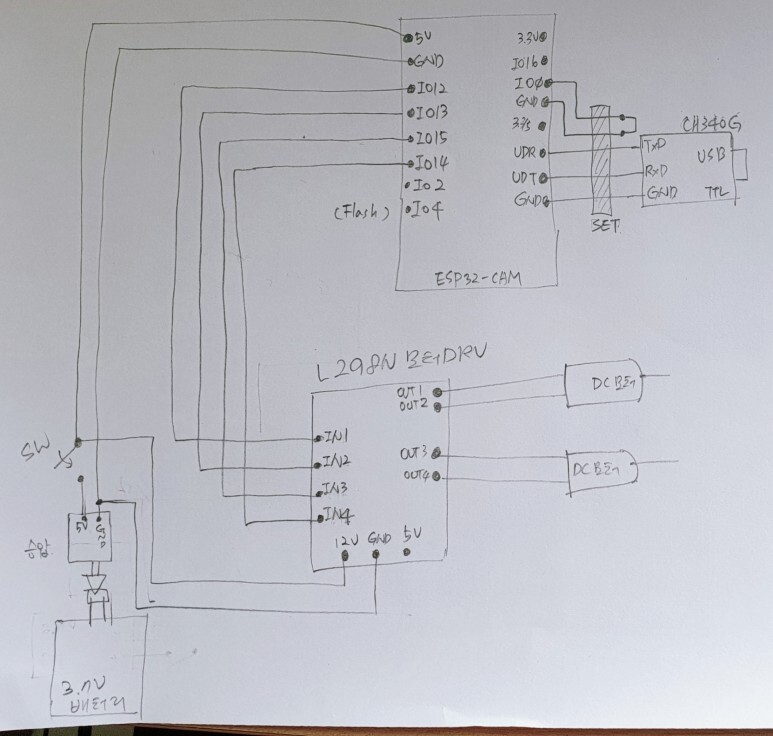 5V
GND
IO12
IO13
IO15
IO14
IO2
(Flash) IO4
3.3V
IO16
IO0
GND
UDR
UDT
GND
ESP32-CAM
SET
CH340G
TxD
RxD
GND
USB
TTL
L298N 모터DRV
OUT1
OUT2
OUT3
OUT4
IN1
IN2
IN3
IN4
12V GND 5V
DC모터
DC모터
SW
5V GND
승압
3.7V
배터리